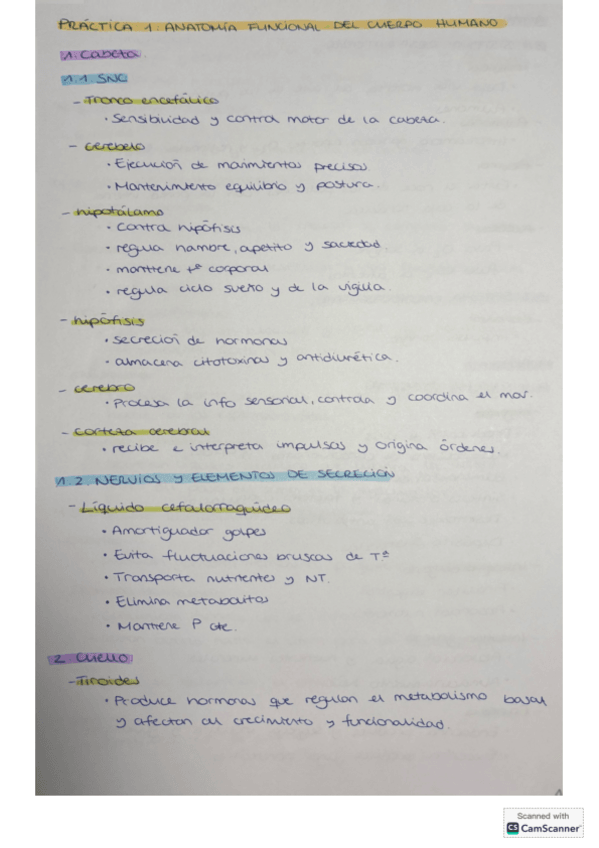 PRÁCTICA 1. ANATOMÍA FUNCIONAL DEL CUERPO HUMANO
1. Cabeza.
1.1 SNC
- Tronco encefálico
• Sensibilidad y control motor de la cabeza.
- cerebelo
• Ejecución de movimientos precisos.
• Mantenimiento equilibrio y postura.
- hipotálamo
• Contra hipófisis
• regula hambre, apetito y saciedad.
• mantiene tª corporal
• regula ciclo sueño y de la vigilia.
- hipófisis
• secreción de hormonas
• almacena citotoxinas y antidiurética.
- cerebro
• Procesa la info sensorial, controla y coordina el mov.
- corteza cerebral
• recibe e interpreta impulsos y origina órdenes.
1.2. NERVIOS Y ELEMENTOS DE SECRECIÓN
- Líquido cefalorraquídeo
• Amortiguador golpes
• Evita fluctuaciones bruscas de Tª
• Transporta nutrientes y NT.
• Elimina metabolitos
• Mantiene P cte.
2. Cuello
- Tiroides
• Produce hormonas que regulan el metabolismo basal
y afectan al crecimiento y funcionalidad.
Scanned with
CS CamScanner